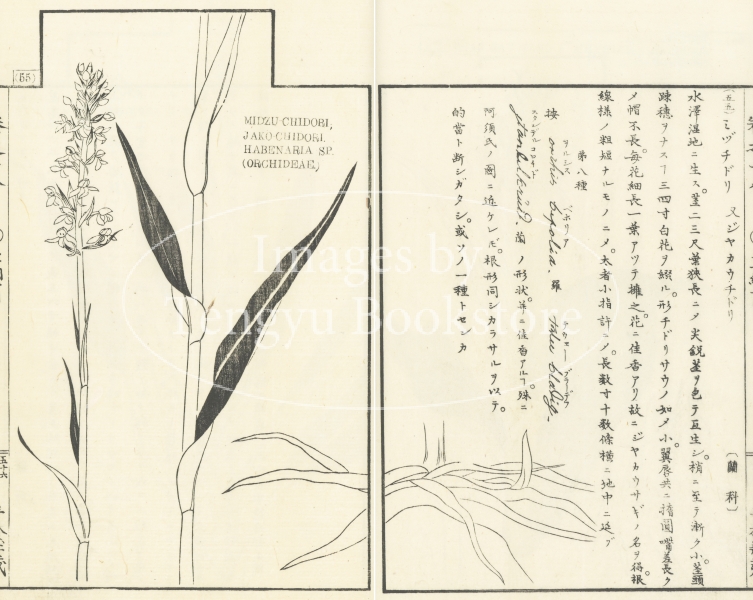 (五五)ミヅチドリ 又ジヤカウチドリ 〔蘭科〕
水澤溼地ニ生ス。莖二三尺葉狹長ニメ尖鋭莖ヲ包テ互生シ。梢ニ至テ漸ク小。莖頭
疎穗ヲナスヿ三四寸白花ヲ綴ル。形チドリサウノ如メ小。翼唇共ニ
メ帽不長。每花細長一葉アツテ擁之。花ニ佳香アリ故ニジヤカウサギノ名ヲ得。根
線様ノ粗短ナルモノニメ。太者小指許ニメ。長數寸十數條横ニ地中ニ延ブ
第八種
按 orchis bifolia. 羅
蘭ノ形狀。并ニ佳香アルヿ。殊ニ
阿須氏ノ圖ニ近ケレモ。根形同シカラサルヲ以テ。
的當ト斷シガタシ。或ソノ一種トセンカ
(55)
MIDZU-CHIDORI,
JAKO-CHIDORI.
HABENARIA SP.
(ORCHIDEAE)
Images by
Tengyu Bookstore